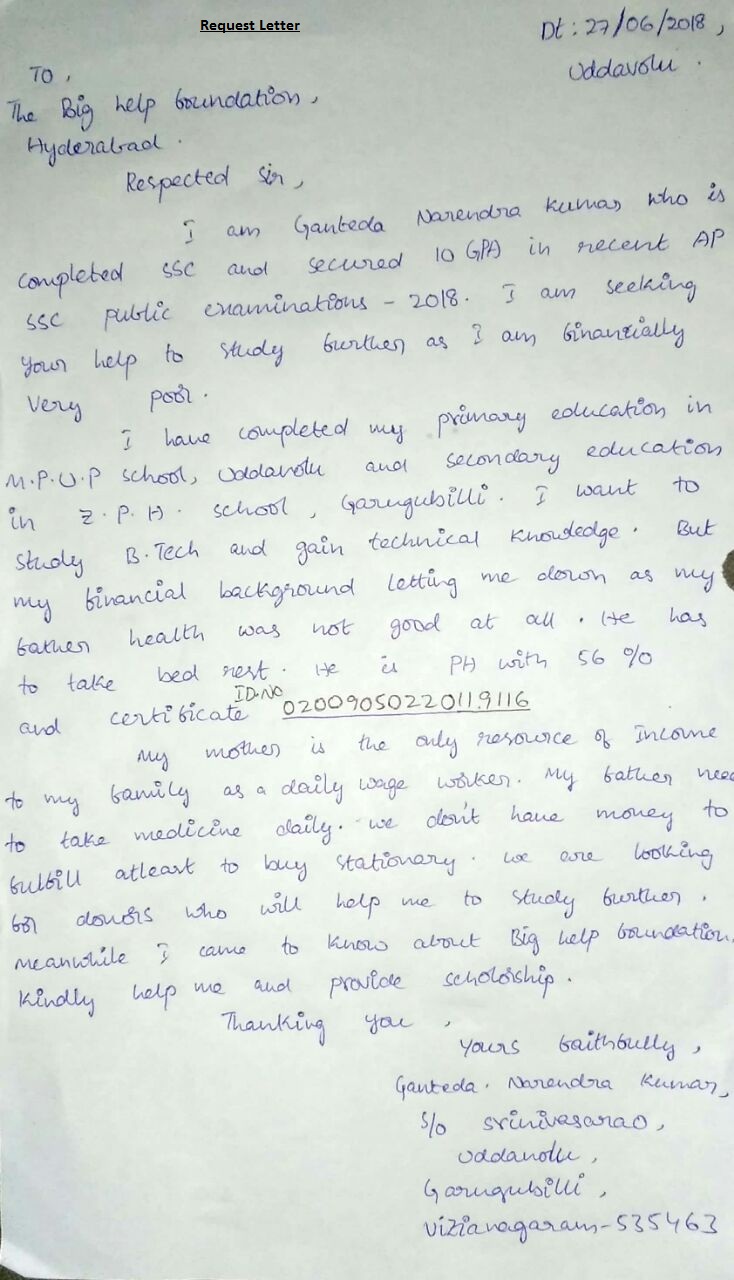 Request Letter
Dt : 27/06/2018,
Uddavolu.
To,
The Big help foundation,
Hyderabad.
Respected Sir,
I am Ganteda Narendra Kumar who is
completed SSC and secured 10 GPA in recent AP
SSC public examinations - 2018. I am seeking
your help to study further as I am financially
very poor.
I have completed my primary education in
M.P.U.P school, Uddavolu and secondary education
in Z.P.H. school, Garugubilli. I want to
study B.Tech and gain technical knowledge. But
my financial background letting me down as my
father health was not good at all. He has
to take bed rest. He is PH with 56 %
and certificate ID.No 02009050220119116
My mother is the only resource of Income
to my family as a daily wage worker. My father need
to take medicine daily. we don't have money to
fulfill atleast to buy stationary. we are looking
for donors who will help me to study further.
meanwhile I came to know about Big help foundation.
Kindly help me and provide scholorship.
Thanking you,
yours faithfully,
Ganteda. Narendra Kumar,
S/o Srinivasarao,
Uddavolu,
Garugubilli,
Vizianagaram-535463